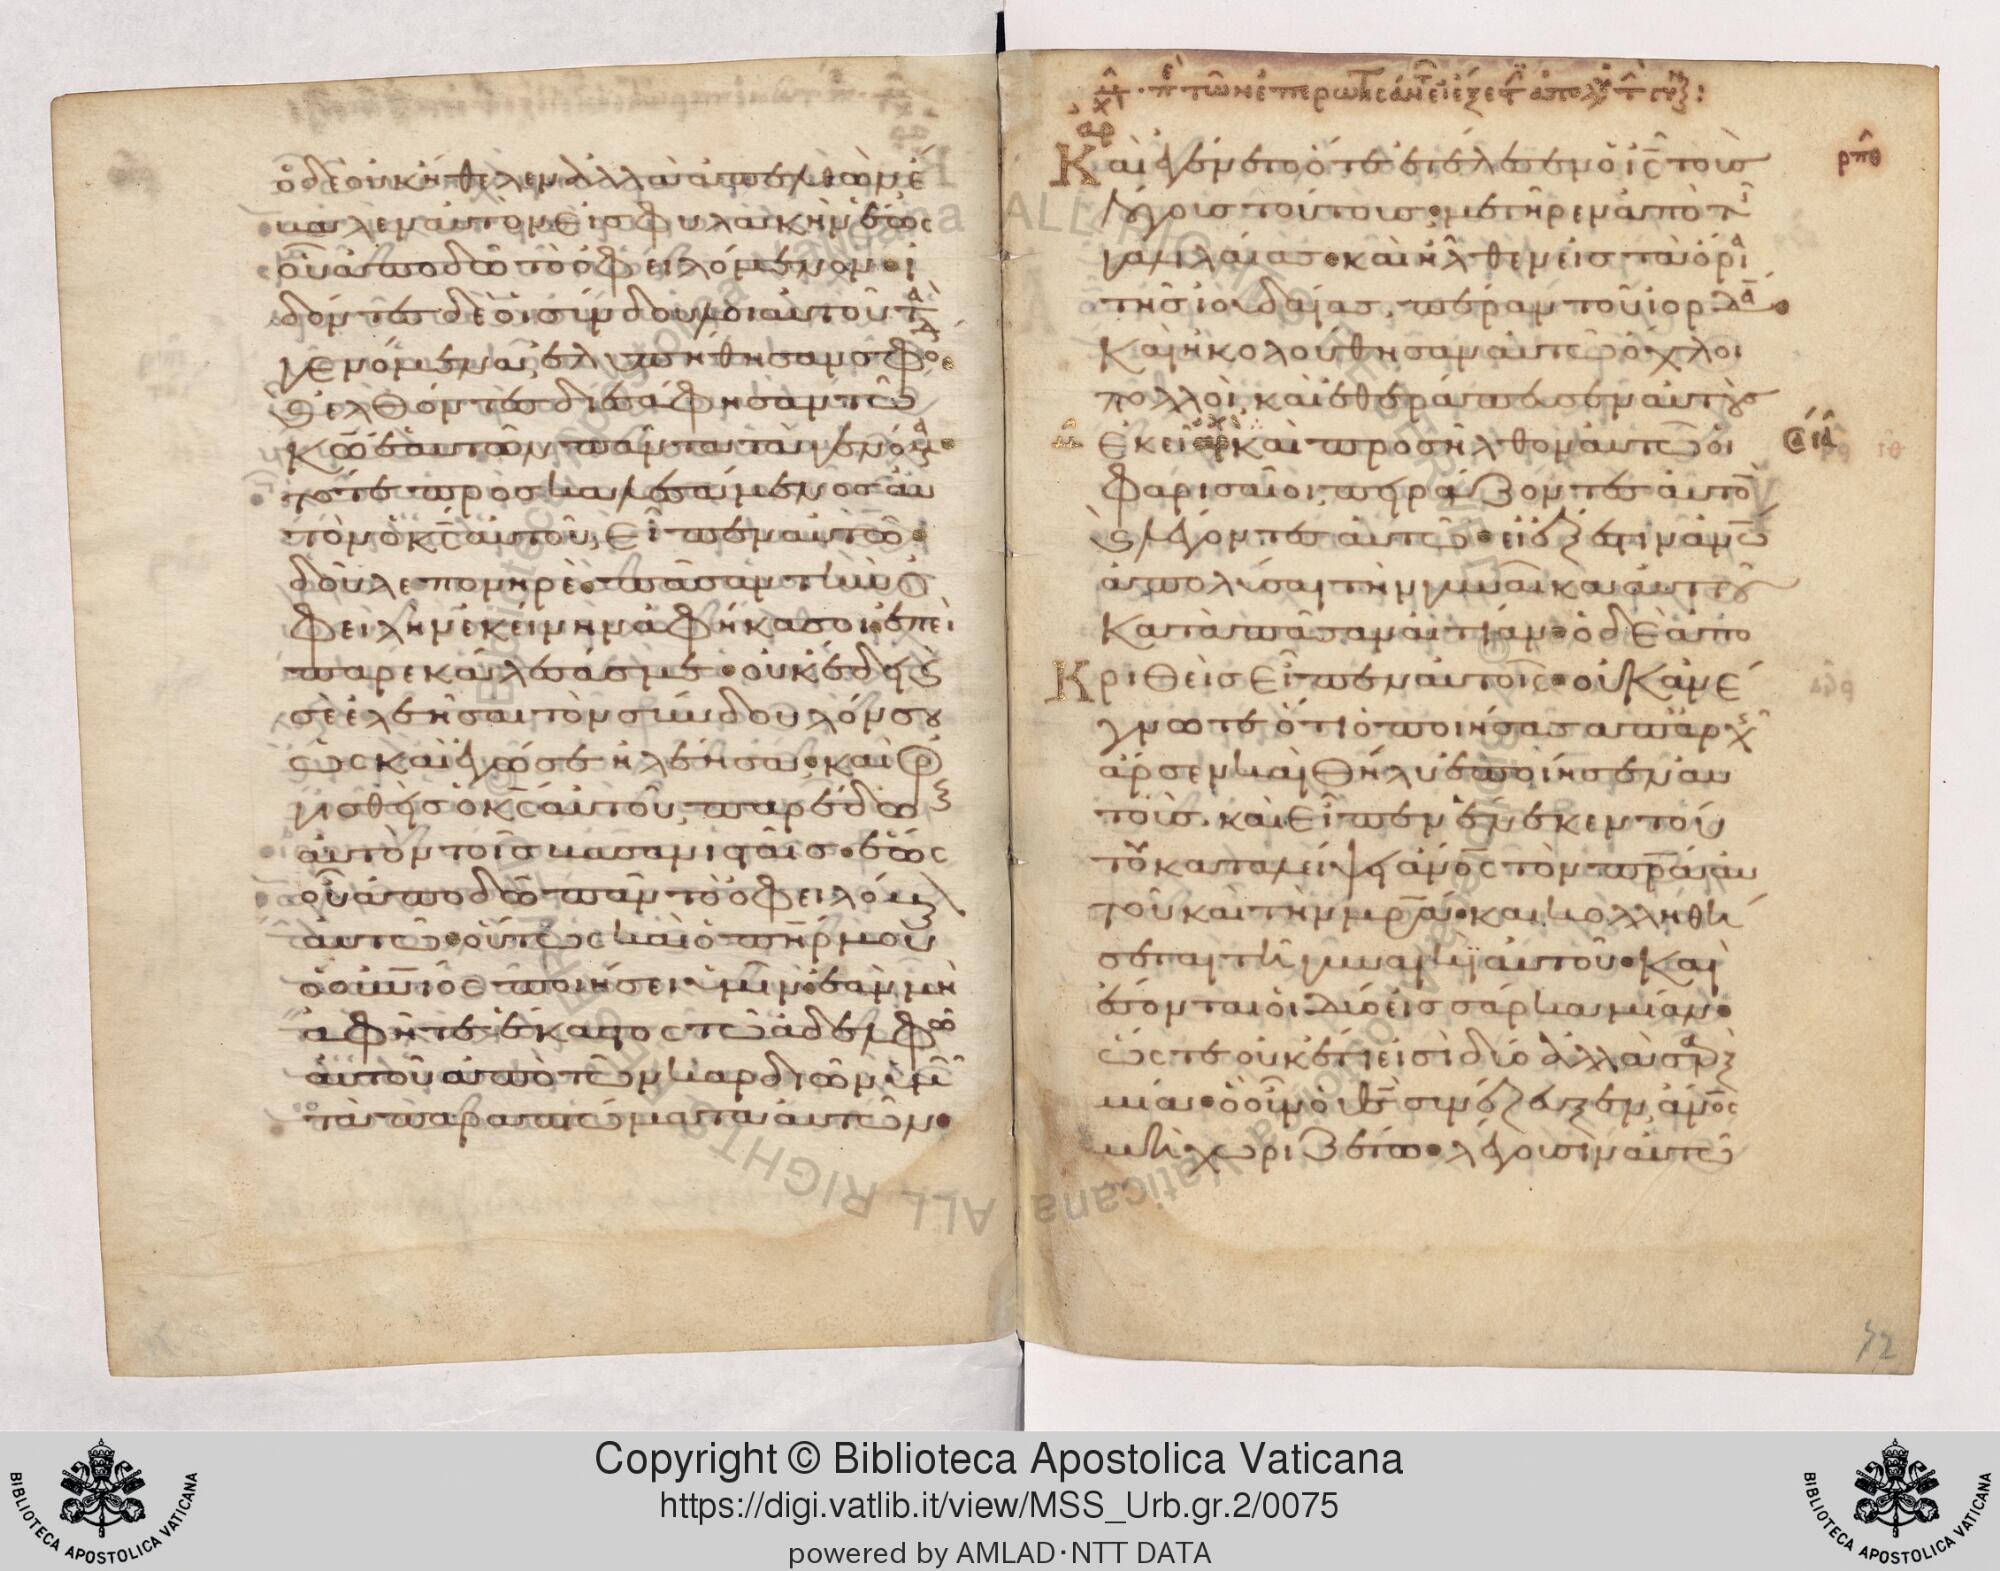 ὁ δὲ οὐκ ἤθελεν ἀλλὰ ἀπελθὼν ἔ
βαλεν αὐτὸν εἰς φυλακὴν ἕως
οὗ ἀποδῶ τὸ ὀφειλόμενον· ἰ
δόντες δὲ οἱ σύνδουλοι αὐτοῦ τὰ
γενόμενα, ἐλυπήθησαν σφό
καὶ ἐλθόντες διεσάφησαν τῶ
κῶ ἑαυτῶν πάντα τὰ γενόμενα·
τότε προσκαλεσάμενος αὐ
τὸν ὁ κς αὐτοῦ, εἶπεν αὐτῶ·
δοῦλε πονηρὲ· πᾶσαν τὴν ὀ
φειλὴν ἐκείνην ἀφῆκα σοι· ἐπεὶ
παρεκάλεσάς με· οὐκ ἔδει καὶ
σὲ ἐλεῆσαι τὸν σύνδουλόν σου
ὡς καὶ ἐγώ σε ἠλέησα· καὶ ὀρ
γισθεὶς ὁ κς αὐτοῦ, παρέδω
αὐτὸν τοῖς βασανισταῖς· ἕως
οὗ ἀποδῶ πᾶν τὸ ὀφειλόμ
αὐτῶ· οὕτως καὶ ὁ πηρ μου
ὁ οὐνιος ποιήσει ὑμῖν· ἐὰν μὴ
ἀφῆτε ἕκαστος τῶ ἀδελφῶ
αὐτοῦ ἀπὸ τῶν καρδιῶν ὑμῶν
τὰ παραπτώματα αὐτῶν·
Καὶ ἐγένετο ὅτε ἐτέλεσεν ὁ ις τοὺς
λόγους τούτους· μετῆρεν ἀπὸ τῆς
γαλιλαίας· καὶ ἦλθεν εἰς τὰ ὅρια
τῆς ἰουδαίας, πέραν τοῦ ἰορδά·
Καὶ ἠκολούθησαν αὐτῶ ὄχλοι
πολλοὶ, καὶ ἐθεράπευσεν αὐτοὺς
ἐκεῖ· καὶ προσῆλθον αὐτῶ οἱ
φαρισαῖοι, πειράζοντες αὐτὸν
καὶ λέγοντες αὐτῶ· εἰ ἔξεστιν ἀνω
ἀπολῦσαι τὴν γυναῖκα αὐτοῦ
κατὰ πᾶσαν αἰτίαν· ὁ δὲ ἀπο
Κριθεὶς εἶπεν αὐτοῖς· οὐκ ἀνέ
γνωτε ὅτι ὁ ποιήσας ἀπαρχῆς
ἄρσεν καὶ θῆλυ ἐποίησεν αὐ
τοὺς. καὶ εἶπεν· ἕνεκεν τού
του καταλείψει ἀνος τὸν πρα αὐ
τοῦ καὶ τὴν μρα· καὶ κολληθή
σεται τῇ γυναικὶ αὐτοῦ· καὶ
ἔσονται οἱ δύο εἰς σάρκα μίαν·
ὥστε οὐκ ἔτι εἰσὶ δύο ἀλλὰ σὰρξ
μία· ὃ οὖν ὁ θς συνέζευξεν, ἀνος
μὴ χωριζέτω· λέγουσιν αὐτῶ
ρπθ
32
Copyright © Biblioteca Apostolica Vaticana
https://digi.vatlib.it/view/MSS_Urb.gr.2/0075
powered by AMLAD·NTT DATA
BIBLIOTECA APOSTOLICA VATICANA
BIBLIOTECA APOSTOLICA VATICANA